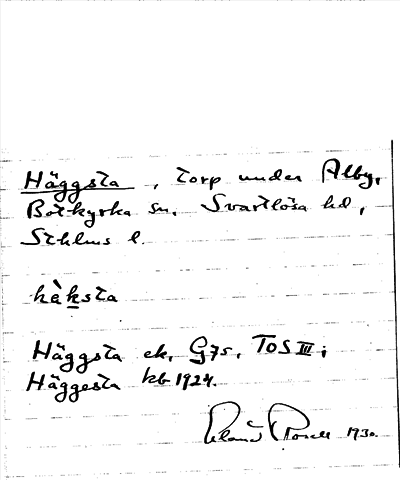 Häggsta, torp under Alby,
Botkyrka sn. Svartlösa hd,
Sthlms l.
hàksta
Häggsta ek. G75. TOS III;
Häggesta kb 1924.
1930.